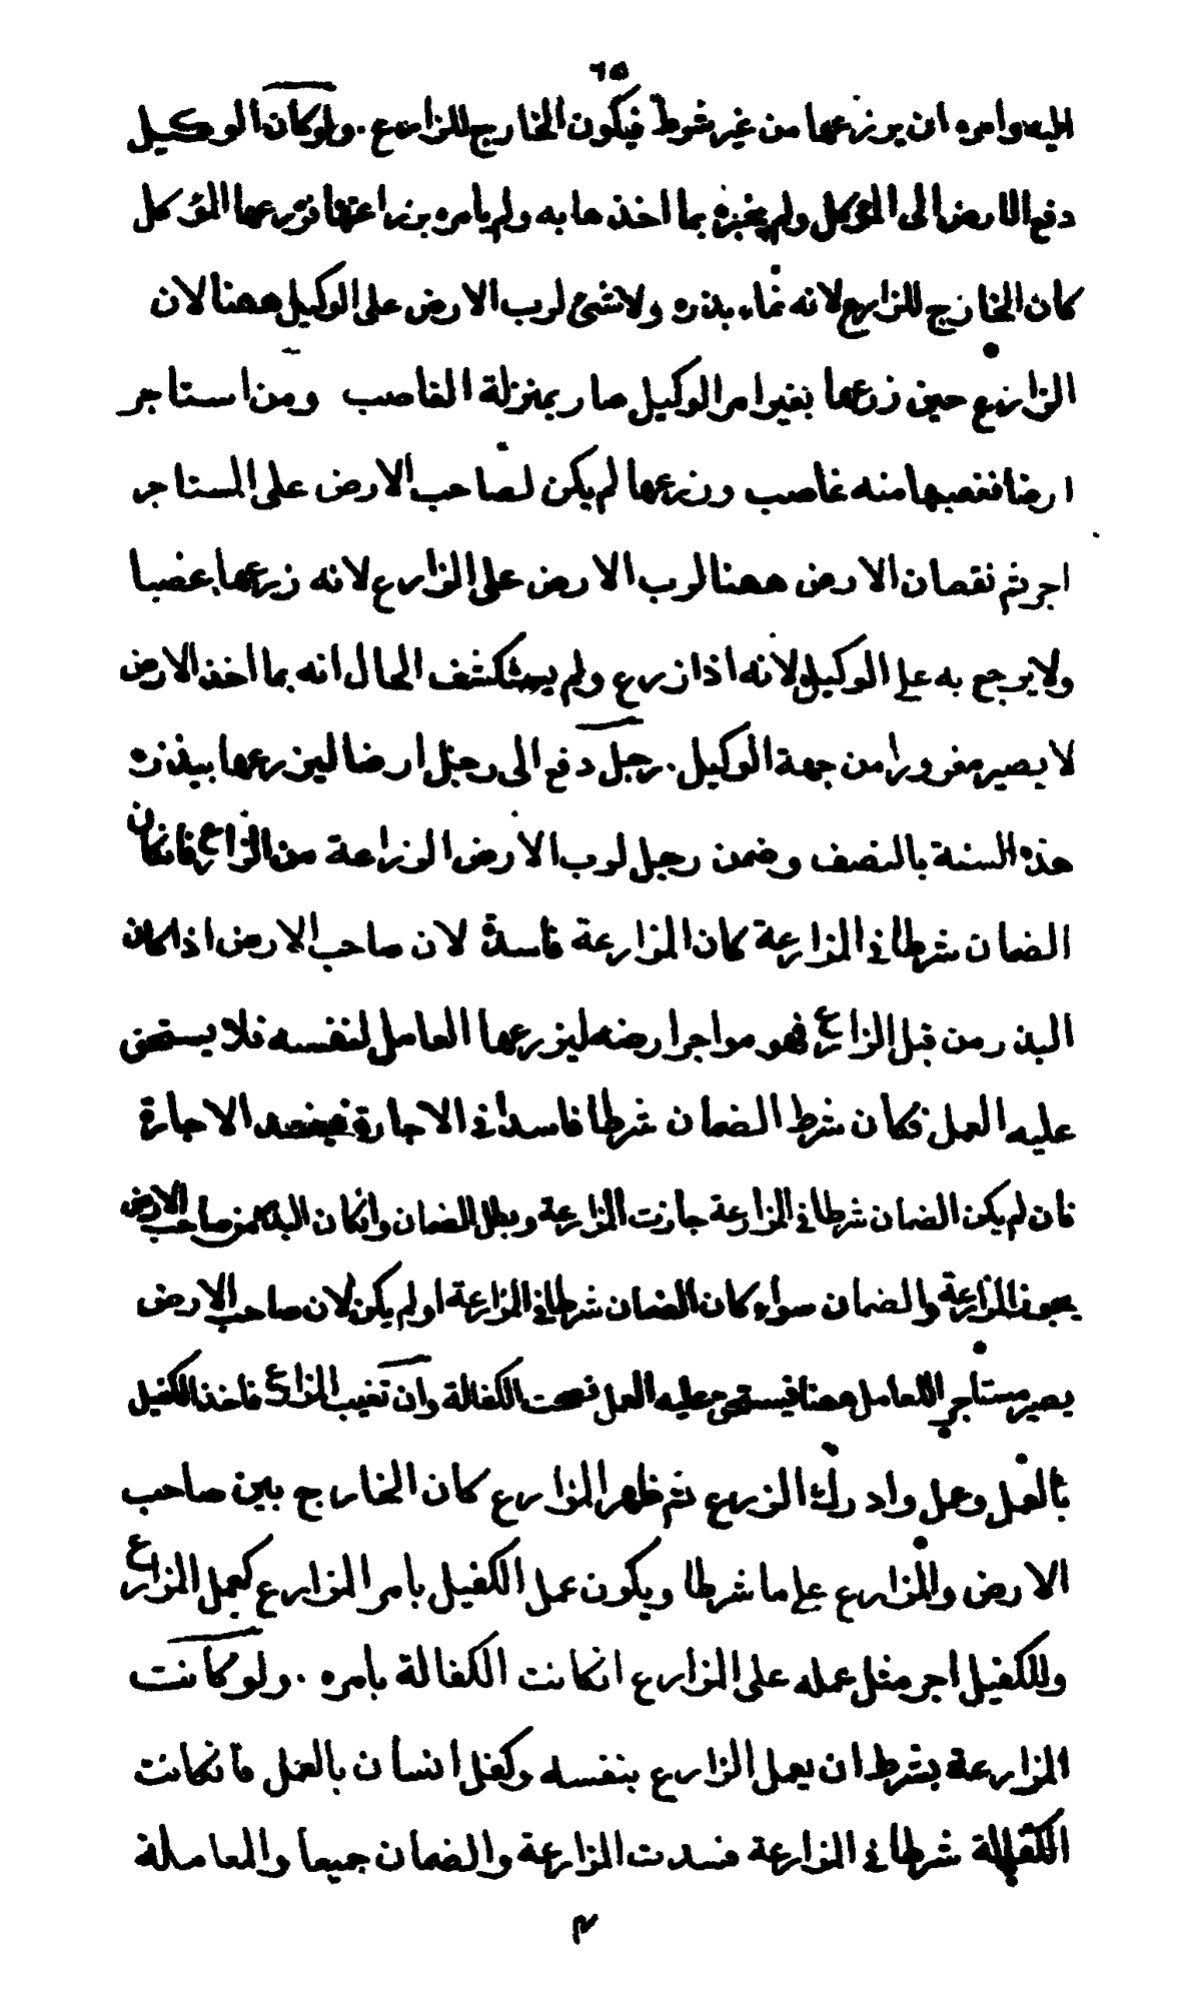 ٦٥
اليه وامره ان يزرعها من غير شرط فيكون الخارج للزارع . ولو كان الوكيل
دفع الارض الى الموكل ولم يخبره بما اخذها به ولم يامره بزراعتها فزرعها الموكل
كان الخارج للزارع لانه نماء بذره ولا شئ لرب الارض على الوكيل ههنا لان
الزارع حين زرعها بغير امر الوكيل صار بمنزلة الغاصب ومن استاجر
ارضا فغصبها منه غاصب وزرعها لم يكن لصاحب الارض على المستاجر
اجر ثم نقصان الارض ههنا لرب الارض على الزارع لانه زرعها غصبا
ولا يرجع به على الوكيل لانه اذا زرع ولم يستكشف الحال انه بما اخذ الارض
لا يصير مغرورا من جهة الوكيل . رجل دفع الى رجل ارضا ليزرعها ببذره
هذه السنة بالنصف وضمن رجل لرب الارض الزراعة من الزارع فانكان
الضمان شرطا في المزارعة كان المزارعة فاسدة لان صاحب الارض اذا كان
البذر من قبل الزارع فهو مواجر ارضه ليزرعها العامل لنفسه فلا يستحق
عليه العمل فكان شرط الضمان شرطا فاسدا في الاجارة فيفسد الاجارة
فان لم يكن الضمان شرطا في المزارعة جازت المزارعة وبطل الضمان وانكان البذر من صاحب الارض
يجوز المزارعة والضمان سواء كان الضمان شرطا في المزارعة او لم يكن لان صاحب الارض
يصير مستاجر اللعامل ههنا فيستحق عليه العمل فصحت الكفالة وان تغيب المزارع فاخذ الكفيل
بالعمل وعمل وادرك الزرع ثم ظهر المزارع كان الخارج بين صاحب
الارض والمزارع على ما شرطا ويكون عمل الكفيل بامر المزارع كعمل المزارع
وللكفيل اجر مثل عمله على المزارع انكانت الكفالة بامره . ولو كانت
المزارعة بشرط ان يعمل الزارع بنفسه وكفل انسان بالعمل فانكانت
الكفالة شرطا في المزارعة فسدت المزارعة والضمان جميعا والمعاملة